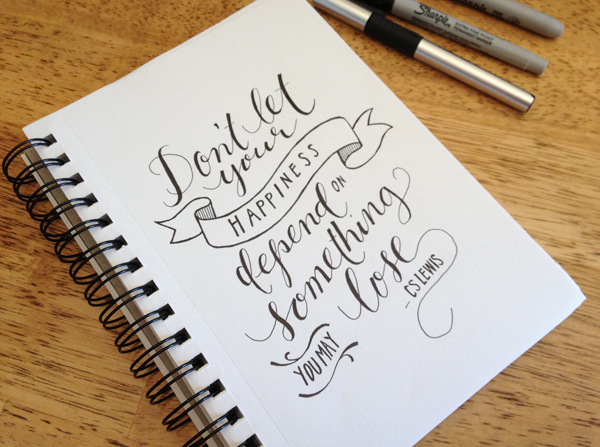 Don't let
your
HAPPINESS
depend ON
something
YOU MAY lose
- CS LEWIS
Sharpie
Sharpie